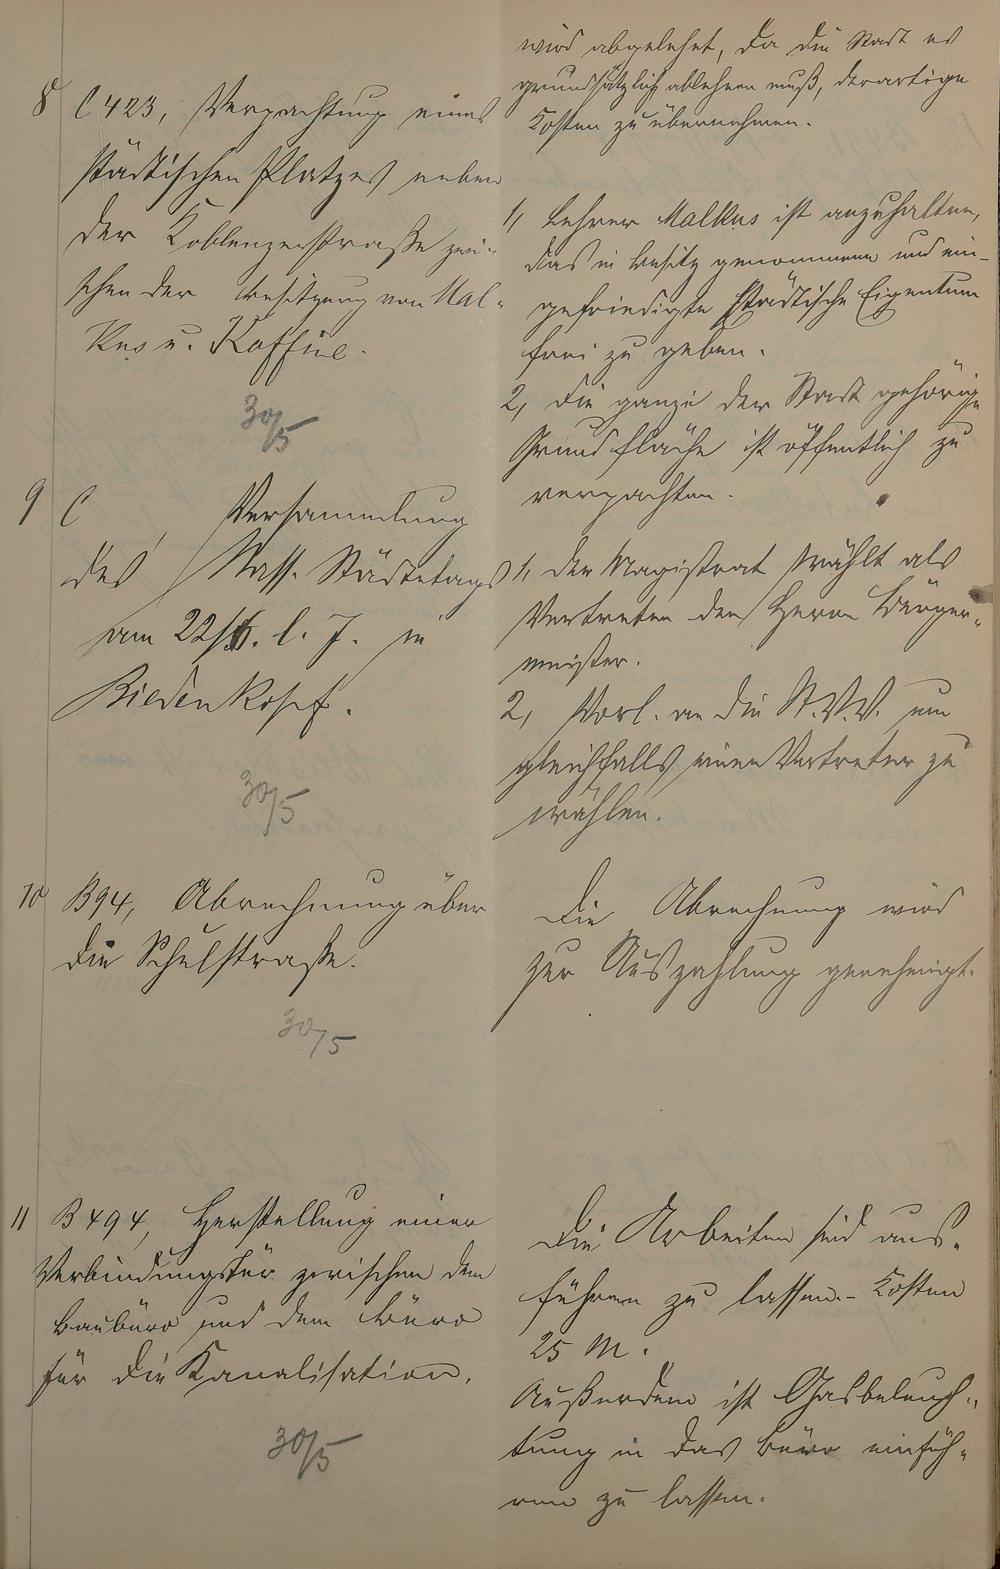 wird abgelehnt, da die Stadt es
grundsätzlich ablehnen muß, derartige
Kosten zu übernehmen.
8 C 423, Verpachtung eines
städtischen Platzes neben
der Koblenzerstraße zwi-
schen der Besitzung von Mal-
kus u.
30/5
1, Lehrer Malkus ist anzuhalten,
das in Besitz genommene und ein-
gefriedigte städtische Eigentum
frei zu geben.
2, die ganze der Stadt gehörige
Grundfläche ist öffentlich zu
verpachten.
9 C Versammlung
des Nass. Städtetags
am 22/6. l. J. in
Biedenkopf.
30/5
1, der Magistrat wählt als
Vertreter den Herrn Bürger-
meister.
2, Vorl. an die St.V.V. um
gleichfalls einen Vertreter zu
wählen.
10 B94, Abrechnung über
die Schulstraße.
30/5
Die Abrechnung wird
zur Auszahlung genehmigt.
11 B 494, Herstellung einer
Verbindungstür zwischen dem
Baubüro und dem Büro
für die Kanalisation.
30/5
Die Arbeiten sind aus-
führen zu lassen. - Kosten
25 M.
Außerdem ist Gasbeleuch-
tung in das Büro einfüh-
ren zu lassen.